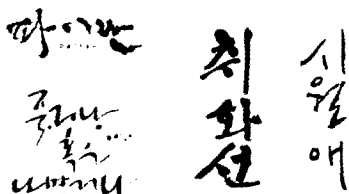 파이란
죽거나
혹은
나쁘거나
취화선
시월애